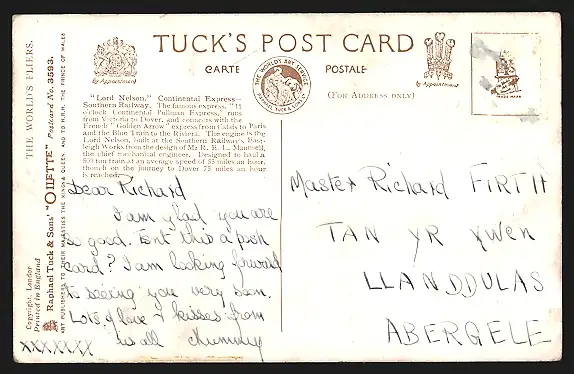 TUCK'S POST CARD
CARTE POSTALE
(FOR ADDRESS ONLY)
by Appointment
by Appointment
THE WORLD'S ART SERVICE
RAPHAEL TUCK & SONS LTD
TRADE MARK
THE WORLD'S FLIERS.
Copyright, London
Printed in England
Raphael Tuck & Sons' "OILETTE" Postcard No. 3593.
ART PUBLISHERS TO THEIR MAJESTIES THE KING & QUEEN AND TO H.R.H. THE PRINCE OF WALES
"Lord Nelson," Continental Express—
Southern Railway. The famous express, "11
o'clock Continental Pullman Express," runs
from Victoria to Dover, and connects with the
French "Golden Arrow" express from Calais to Paris
and the Blue Train to the Riviera. The engine is the
Lord Nelson, built at the Southern Railway's East-
leigh Works from the design of Mr R. E. L. Maunsell,
the chief mechanical engineer. Designed to haul a
500 ton train at an average speed of 55 miles an hour,
though on the journey to Dover 75 miles an hour
is reached.
Dear Richard
I am glad you are
so good. Isnt this a posh
card? I am looking forward
to seeing you very soon.
Lots of love & kisses from
us all
xxxxxxx
Master Richard FIRTH
TAN YR YWEN
LLANDDULAS
ABERGELE